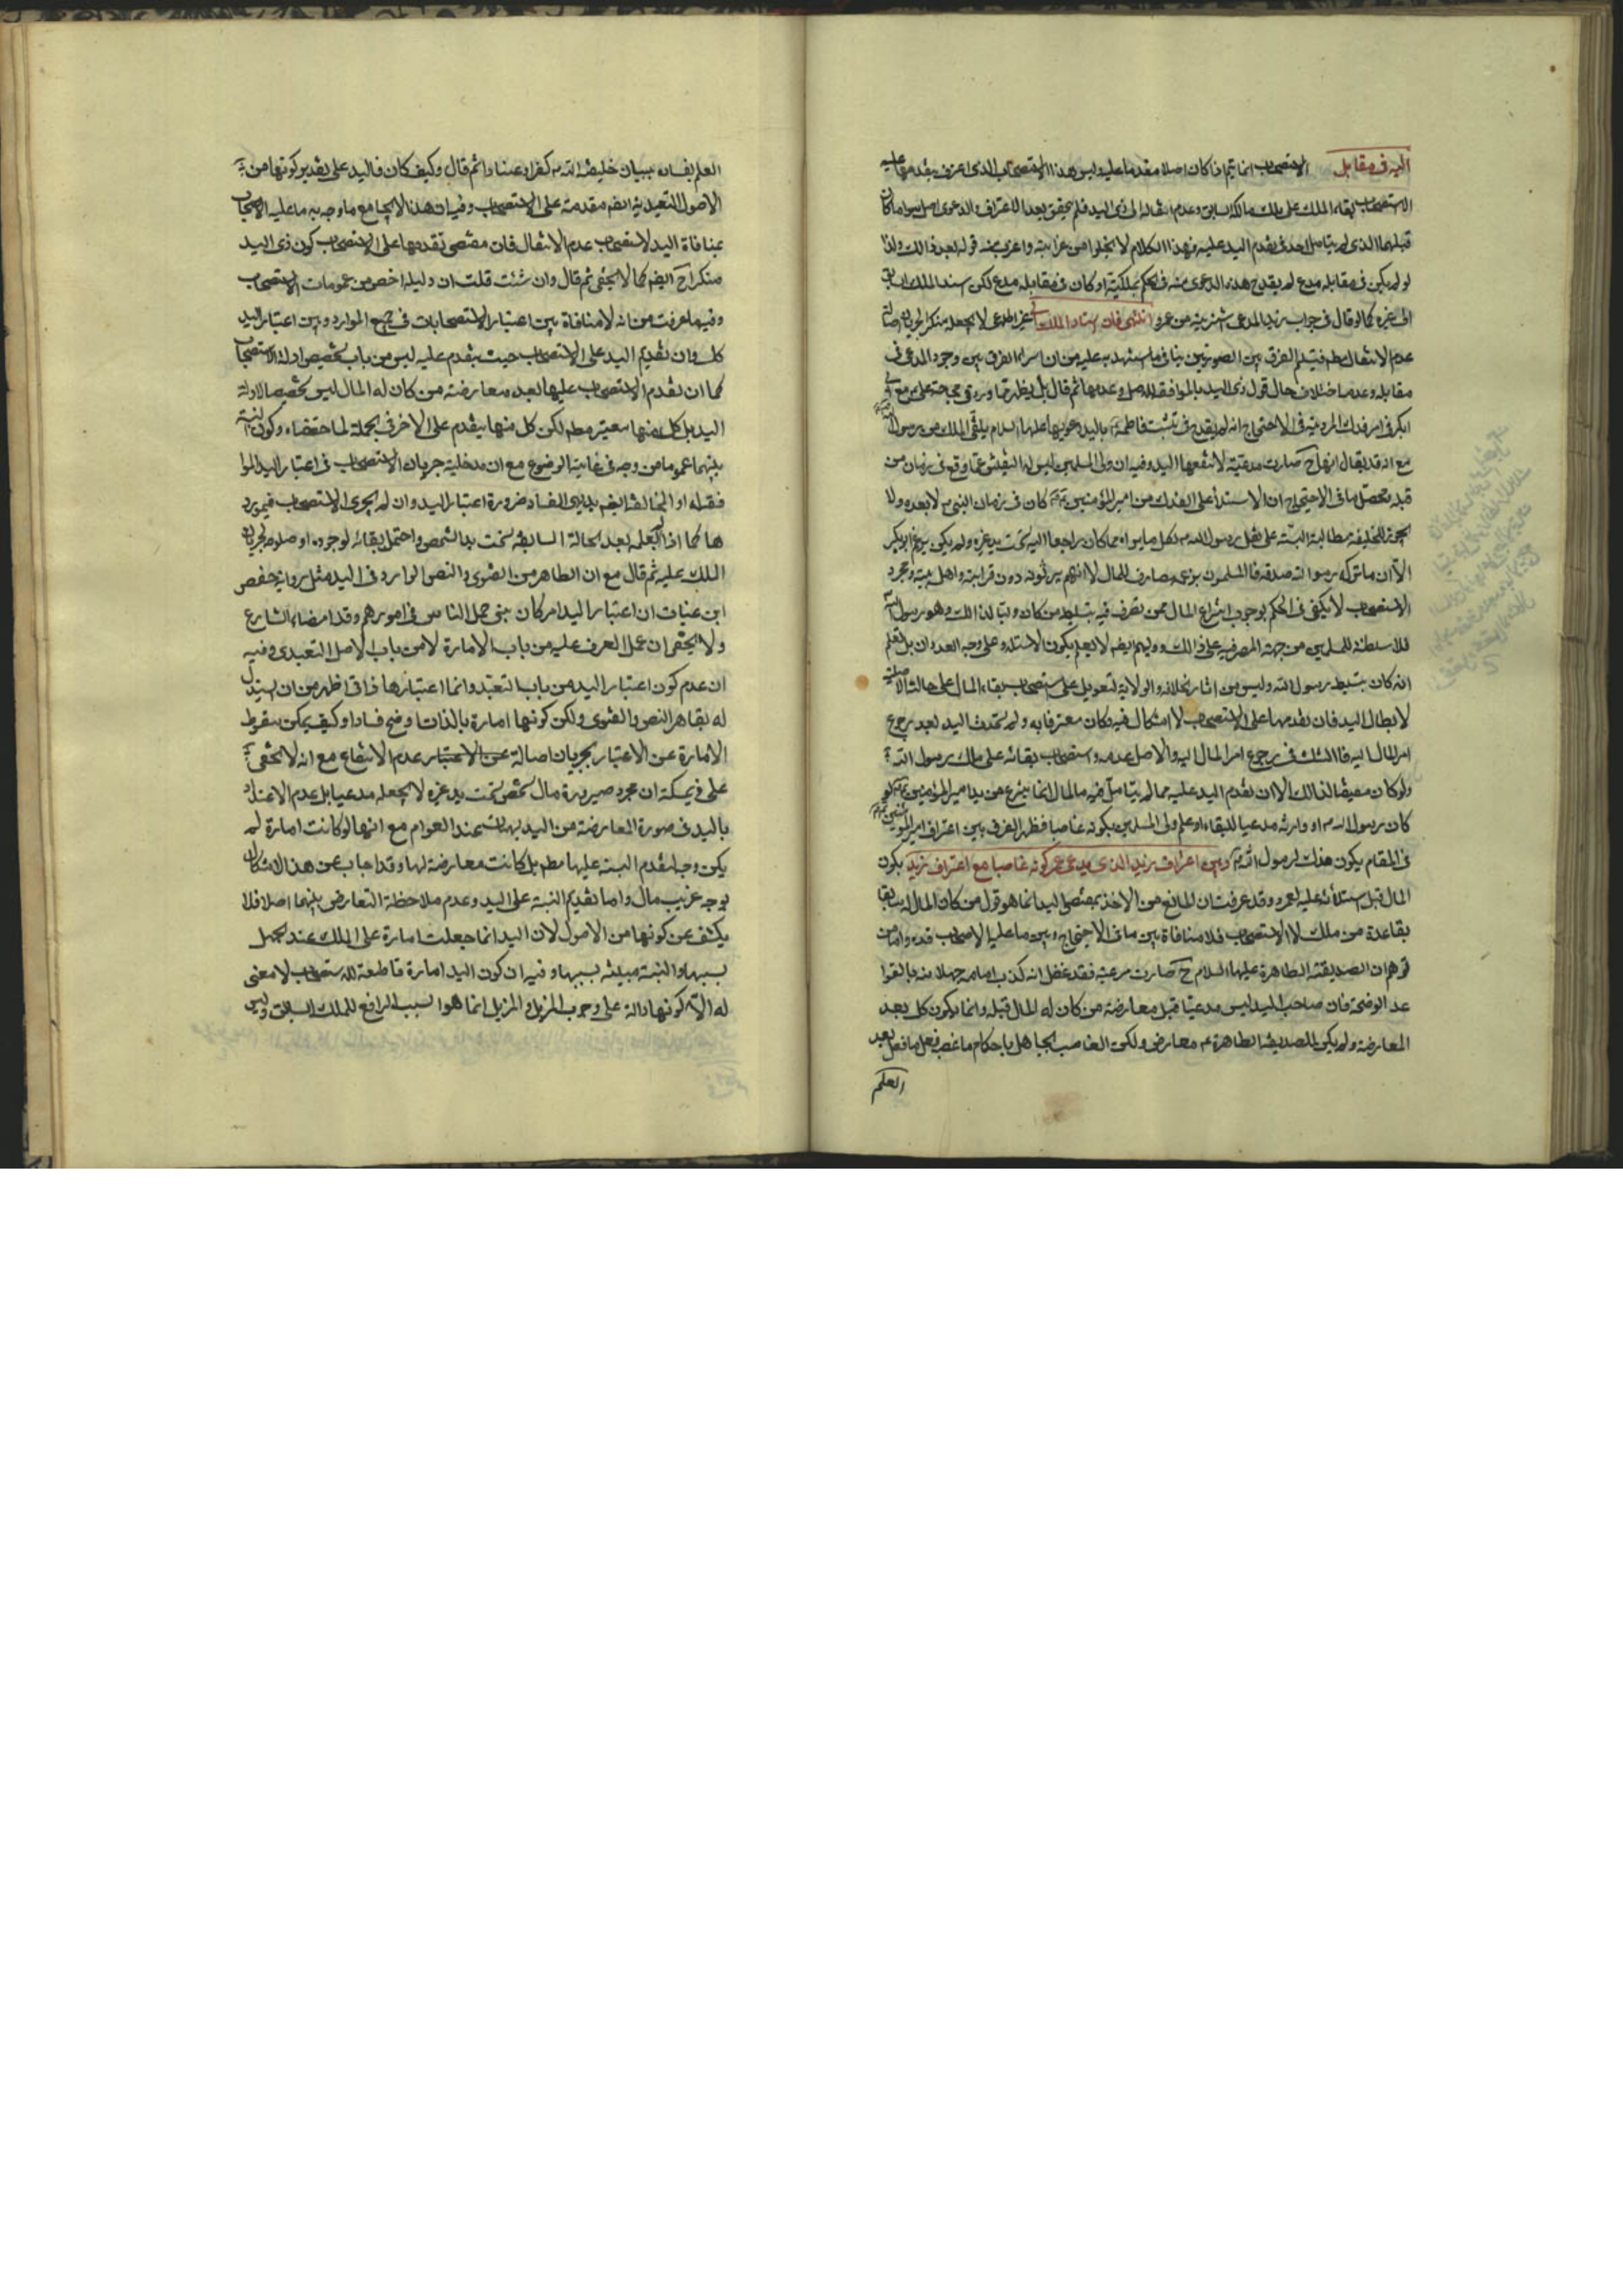 اليه فى مقابل الاستصحاب انما يتم اذا كان اصلا مقدما عليه وليس هذا الاستصحاب الذى اعترف بتقدمها عليه
الاستصحاب بقاء الملك على ملك مالكه السابق وعدم انتقاله الى ذى اليد فلم يتحقق بعد الاعتراف والدعوى اصل سوى ما كان
قبلهما الذى لم يتامل احد فى تقدم اليد عليه فهذا الكلام لا يخلوا من غرابته واغرب منه قوله بعد ذالك ولذا
لو لم يكن فى مقابله مدع لم يقدح هذه الدعوى منه فى الحكم بملكيته او كان فى مقابله مدع لكن اسند الملك السابق
الى غيره كما لو قال فى جواب زيد المدعى اشتريته من عمرو انتهى فان اسناد الملك الى غير المدعى لا يجعله منكرا لجريان اصالة
عدم الانتقال مطم فتسليم الفرق بين الصورتين ينافى ما استشهد به عليه من ان اسراء الفرق بين وجود المدعى فى
مقابله وعدمه اختلاف حال قول ذى اليد بالموافقة للاصل وعدمها ثم قال بل يظهر مما ورد فى محاجة على مع
ابى بكر فى امر فدك المروية فى الاحتجاج انه لم يقدح فى تشبث فاطمة باليد دعويها عليها السلام تلقى الملك من رسول الله
مع انه قد يقال انها ح صارت مدعية لا تنفعها اليد وفيه ان ولى المسلمين ليس له التفتيش عما وقع فى زمان من
قبله محصل ما فى الاحتجاج ان الاستيلاء على الفدك من امير المؤمنين كان فى زمان النبى لا بعده ولا
يجوز للخليفة مطالبة البينة على نقل رسول الله ككل ما سواه مما كان راجعا اليه تحت يد غيره ولم يكن بزعم ابى بكر
الا ان ما تركه رسول الله صدقة فالمسلمون بزعمه مصارف للمال لا انهم يرثونه دون قرابته واهل بيته ومجرد
الاستصحاب لا يكفى فى الحكم بوجوب انتزاع المال ممن تصرف فيه بتسليط من كان وليا لذالك وهو رسول الله
للاسلطنة للمسلمين من جهة المصرفية على ذالك وولیهم ایضم لا يعلم بكون الاستيلاء على وجه العدوان بل يعلم
انه كان بتسليط رسول الله وليس من اثار الخلافة والولاية التعويل على استصحاب بقاء المال على حالته الاصلية
لابطال اليد فان تقدمها على الاستصحاب لا اشكال فيه وكان معترفا به ولم تحدث اليد بعد رجوع
امر المال اليه فالشك فى رجوع امر المال اليه والاصل عدمه واستصحاب بقائه على ملك رسول الله
ولو كان مفيضا لذالك الا ان تقدم اليد عليه مما لم يتامل فيه فالمال انما ينزع عن يد امير المؤمنين لو
كان رسول الله او وارثه مدعيا للبقاء او علم ولى المسلمين بكونه غاصبا فظهر الفرق بين اعتراف امير المؤمنين
فى المقام بكون فدك لرسول الله وبين اعتراف زيد الذى يدعى عمرو كونه غاصبا مع اعتراف زيد بكون
المال قبل استيلائه عليه لعمرو وقد عرفت ان المانع من الاخذ بمقتضى اليد انما هو قول من كان المال له سابقا
بقاعدة من ملك لا الاستصحاب فلا منافاة بين ما فى الاحتجاج وبين ما عليه الاصحاب قده واما من
توهم ان الصديقة الطاهرة عليها السلام ح صارت مدعية فقد غفل انه كذب امامه جهلا منه بالقوا
عد الواضحة فان صاحب اليد ليس مدعيا قبل معارضة من كان له المال قبله وانما يكون كك بعد
المعارضة ولم يكن للصديقة الطاهرة معارض ولكن الغاصب الجاهل باحكام ما غصب فعل ما فعل بعد
العلم
العلم بفساده ببيان خليفة الله كفرا وعنادا ثم قال وكيف كان فاليد على تقدير كونها من
الاصول التعبدية ايضم مقدمة على الاستصحاب وفيه ان هذا لا يجامع ما وجه به ما عليه الاصحاب
بمنافاة اليد لاستصحاب عدم الانتقال فان مقتضى تقدمها على الاستصحاب كون ذى اليد
منكرا ح ايضم كما لا يخفى ثم قال وان شئت قلت ان دليله اخص من عمومات الاستصحاب
وفيه ما عرفت من انه لا منافاة بين اعتبار الاستصحابات فى جميع الموارد وبين اعتبار اليد
كك وان تقديم اليد على الاستصحاب حيث يتقدم عليه ليس من باب تخصيص ادلة الاستصحاب
كما ان تقدم الاستصحاب عليها بعد معارضة من كان له المال ليس تخصيصا لادلة
اليد بل كل منها معتبر مطم لكن كل منها يتقدم على الاخر فى الجملة لما حققناه وكون النسبة
بينهما عموما من وجه فى غاية الوضوح مع ان مدخلية جريان الاستصحاب فى اعتبار اليد الموا
فقة له او المخالفة ايضم بديهى الفساد ضرورة اعتبار اليد وان لم يجرى الاستصحاب فى مورد
ها كما اذا لم يعلم بعد الحالة السابقة تحت يد الشخص واحتمل بقائه لوجوده او صلوحه لجريان
الملك عليه ثم قال مع ان الظاهر من الفتوى والنص الوارد فى اليد مثل رواية حفص
ابن غياث ان اعتبار اليد امر كان مبنى عمل الناس فى امورهم وقد امضاه الشارع
ولا يخفى ان عمل العرف عليه من باب الامارة لا من باب الاصل التعبدى وفيه
ان عدم كون اعتبار اليد من باب التعبد وانما اعتبارها ذاتى اظهر من ان يستدل
له بظاهر النص والفتوى ولكن كونها امارة بالذات اوضح فسادا وكيف يمكن سقوط
الامارة عن الاعتبار بجريان اصالة عن الاعتبار عدم الانتفاع مع انه لا يخفى
على ذى مسكة ان مجرد صيرورة مال شخص تحت يد غيره لا يجعله مدعيا بل عدم الاعتداد
باليد فى صورة المعارضة من البديهيات عند العوام مع انها لو كانت امارة لم
يكن وجه لتقدم البينة عليها مطم بل كانت معارضة لها وقد اجاب عن هذا الاشكال
بوجه غريب قال واما تقديم البينة على اليد وعدم ملاحظة التعارض بينهما اصلا فلا
يكشف عن كونها من الاصول لان اليد انما جعلت امارة على الملك عند الجهل
بسببها والبينة مبينة بسببها وفيه ان كون اليد امارة قاطعة للاستصحاب لا معنى
له الا كونها دالة على وجوب المزيل والمزيل انما هو السبب الرافع للملك السابق وليس